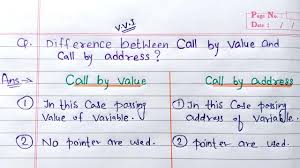 V.V.I
Page No.
Date : / /
Q. Difference between Call by Value and
Call by address ?
Ans → Call by Value
① In this Case passing
Value of Variable.
② No pointer are used.
Call by address
① In this Case posing
address of Variable.
② pointer are used.